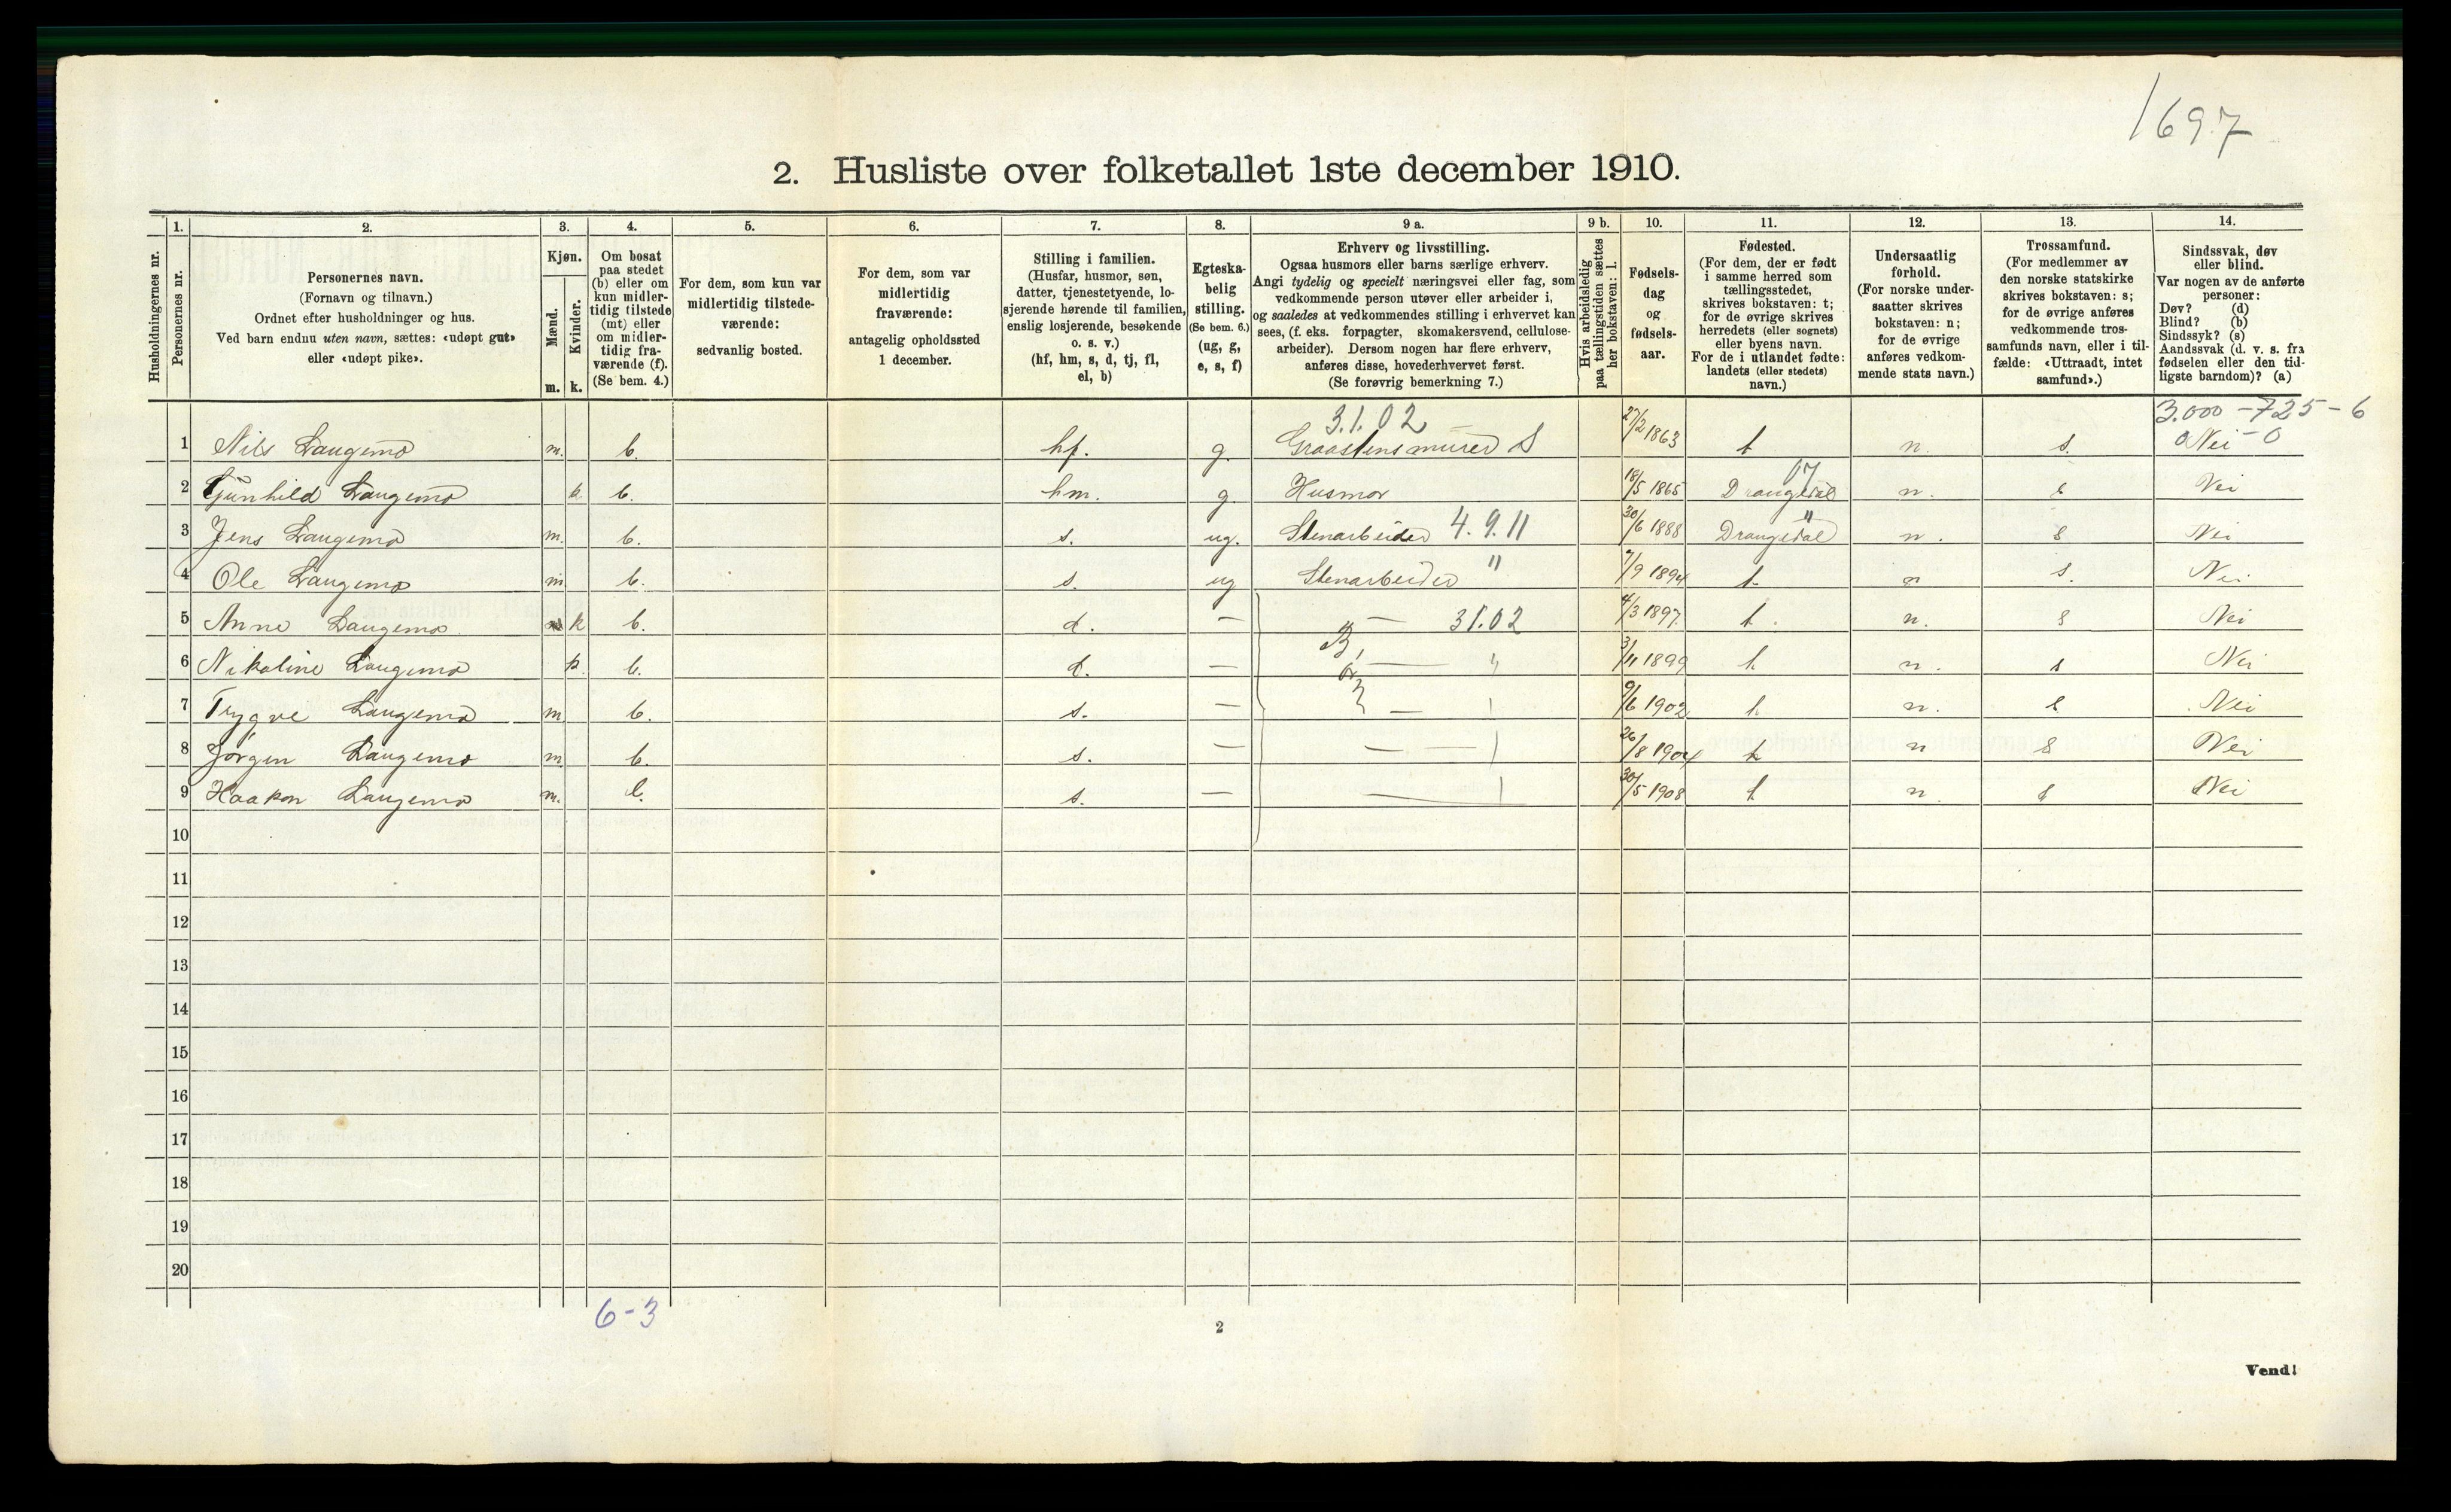 1697
2. Husliste over folketallet 1ste december 1910.
1. 2. 3. 4. 5. 6. 7. 8. 9 a. 9 b. 10. 11. 12. 13. 14.
Husholdningernes nr.
Personernes nr.
Personernes navn.
(Fornavn og tilnavn.)
Ordnet efter husholdninger og hus.
Ved barn endnu uten navn, sættes: «udøpt gut»
eller «udøpt pike».
Kjøn.
Mænd.
m.
Kvinder.
k.
Om bosat
paa stedet
(b) eller om
kun midler-
tidig tilstede
(mt) eller
om midler-
tidig fra-
værende (f).
(Se bem. 4.)
For dem, som kun var
midlertidig tilstede-
værende:
sedvanlig bosted.
For dem, som var
midlertidig
fraværende:
antagelig opholdssted
1 december.
Stilling i familien.
(Husfar, husmor, søn,
datter, tjenestetyende, lo-
sjerende hørende til familien,
enslig losjerende, besøkende
o. s. v.)
(hf, hm, s, d, tj, fl,
el, b)
Egteska-
belig
stilling.
(Se bem. 6.)
(ug, g,
e, s, f)
Erhverv og livsstilling.
Ogsaa husmors eller barns særlige erhverv.
Angi tydelig og specielt næringsvei eller fag, som
vedkommende person utøver eller arbeider i,
og saaledes at vedkommendes stilling i erhvervet kan
sees, (f. eks. forpagter, skomakersvend, cellulose-
arbeider). Dersom nogen har flere erhverv,
anføres disse, hovederhvervet først.
(Se forøvrig bemerkning 7.)
Hvis arbeidsledig
paa tællingstiden sættes
her bokstaven: l.
Fødsels-
dag
og
fødsels-
aar.
Fødested.
(For dem, der er født
i samme herred som
tællingsstedet,
skrives bokstaven: t;
for de øvrige skrives
herredets (eller sognets)
eller byens navn.
For de i utlandet fødte:
landets (eller stedets)
navn.)
Undersaatlig
forhold.
(For norske under-
saatter skrives
bokstaven: n;
for de øvrige
anføres vedkom-
mende stats navn.)
Trossamfund.
(For medlemmer av
den norske statskirke
skrives bokstaven: s;
for de øvrige anføres
vedkommende tros-
samfunds navn, eller i til-
fælde: «Uttraadt, intet
samfund».)
Sindssvak, døv
eller blind.
Var nogen av de anførte
personer:
Døv? (d)
Blind? (b)
Sindssyk? (s)
Aandssvak (d. v. s. fra
fødselen eller den tid-
ligste barndom)? (a)
3.1.02 3.000 - 725 - 6
0 - 0
1 Nils Laugemo m. b. hf. g. Graastensmurer S 27/2 1863 t n. s. Nei
07
2 Gunhild Laugemo k. b. hm. g. Husmor 18/5 1865 Drangedal n. s Nei
3 Jens Laugemo m. b. s. ug. Stenarbeider 4.9.11 30/6 1888 Drangedal " n. s Nei
4 Ole Laugemo m b. s. ug Stenarbeider " 7/9 1894 t. n s. Nei
5 Anne Laugemo k b. d. — — 31.02 4/3 1897. t. n. s Nei
6 Nikoline Laugemo k. b. d. — — " 3/11 1899 t. n. s Nei
7 Trygve Laugemo m b. s. — — 9/6 1902 t. n. s Nei
8 Jørgen Laugemo m b. s. — — 26/8 1904 t n s Nei
9 Haakon Laugemo m. b. s. — — 30/5 1908 t n s Nei
10
11
12
13
14
15
16
17
18
19
20
6-3
2
Vend!